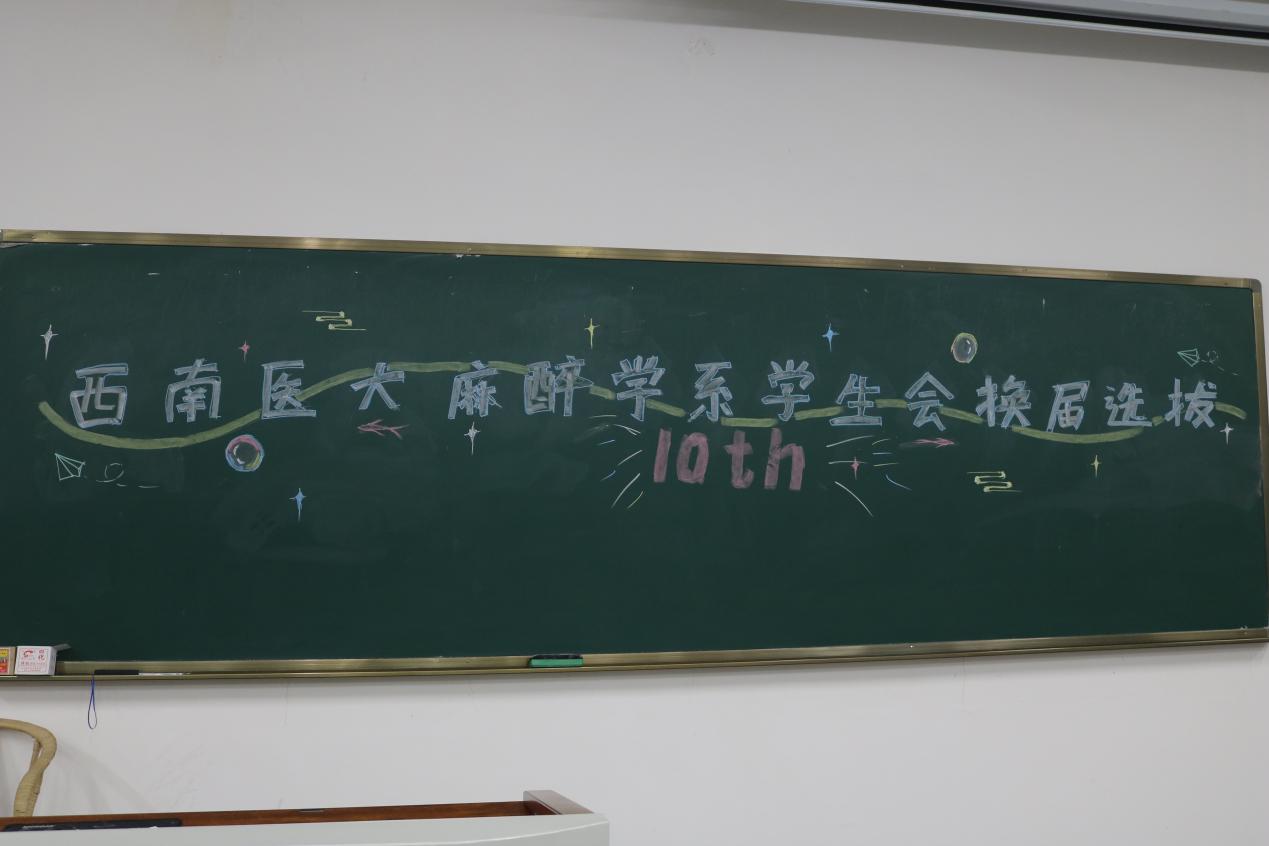 西南医大麻醉学系学生会换届选拔
10th